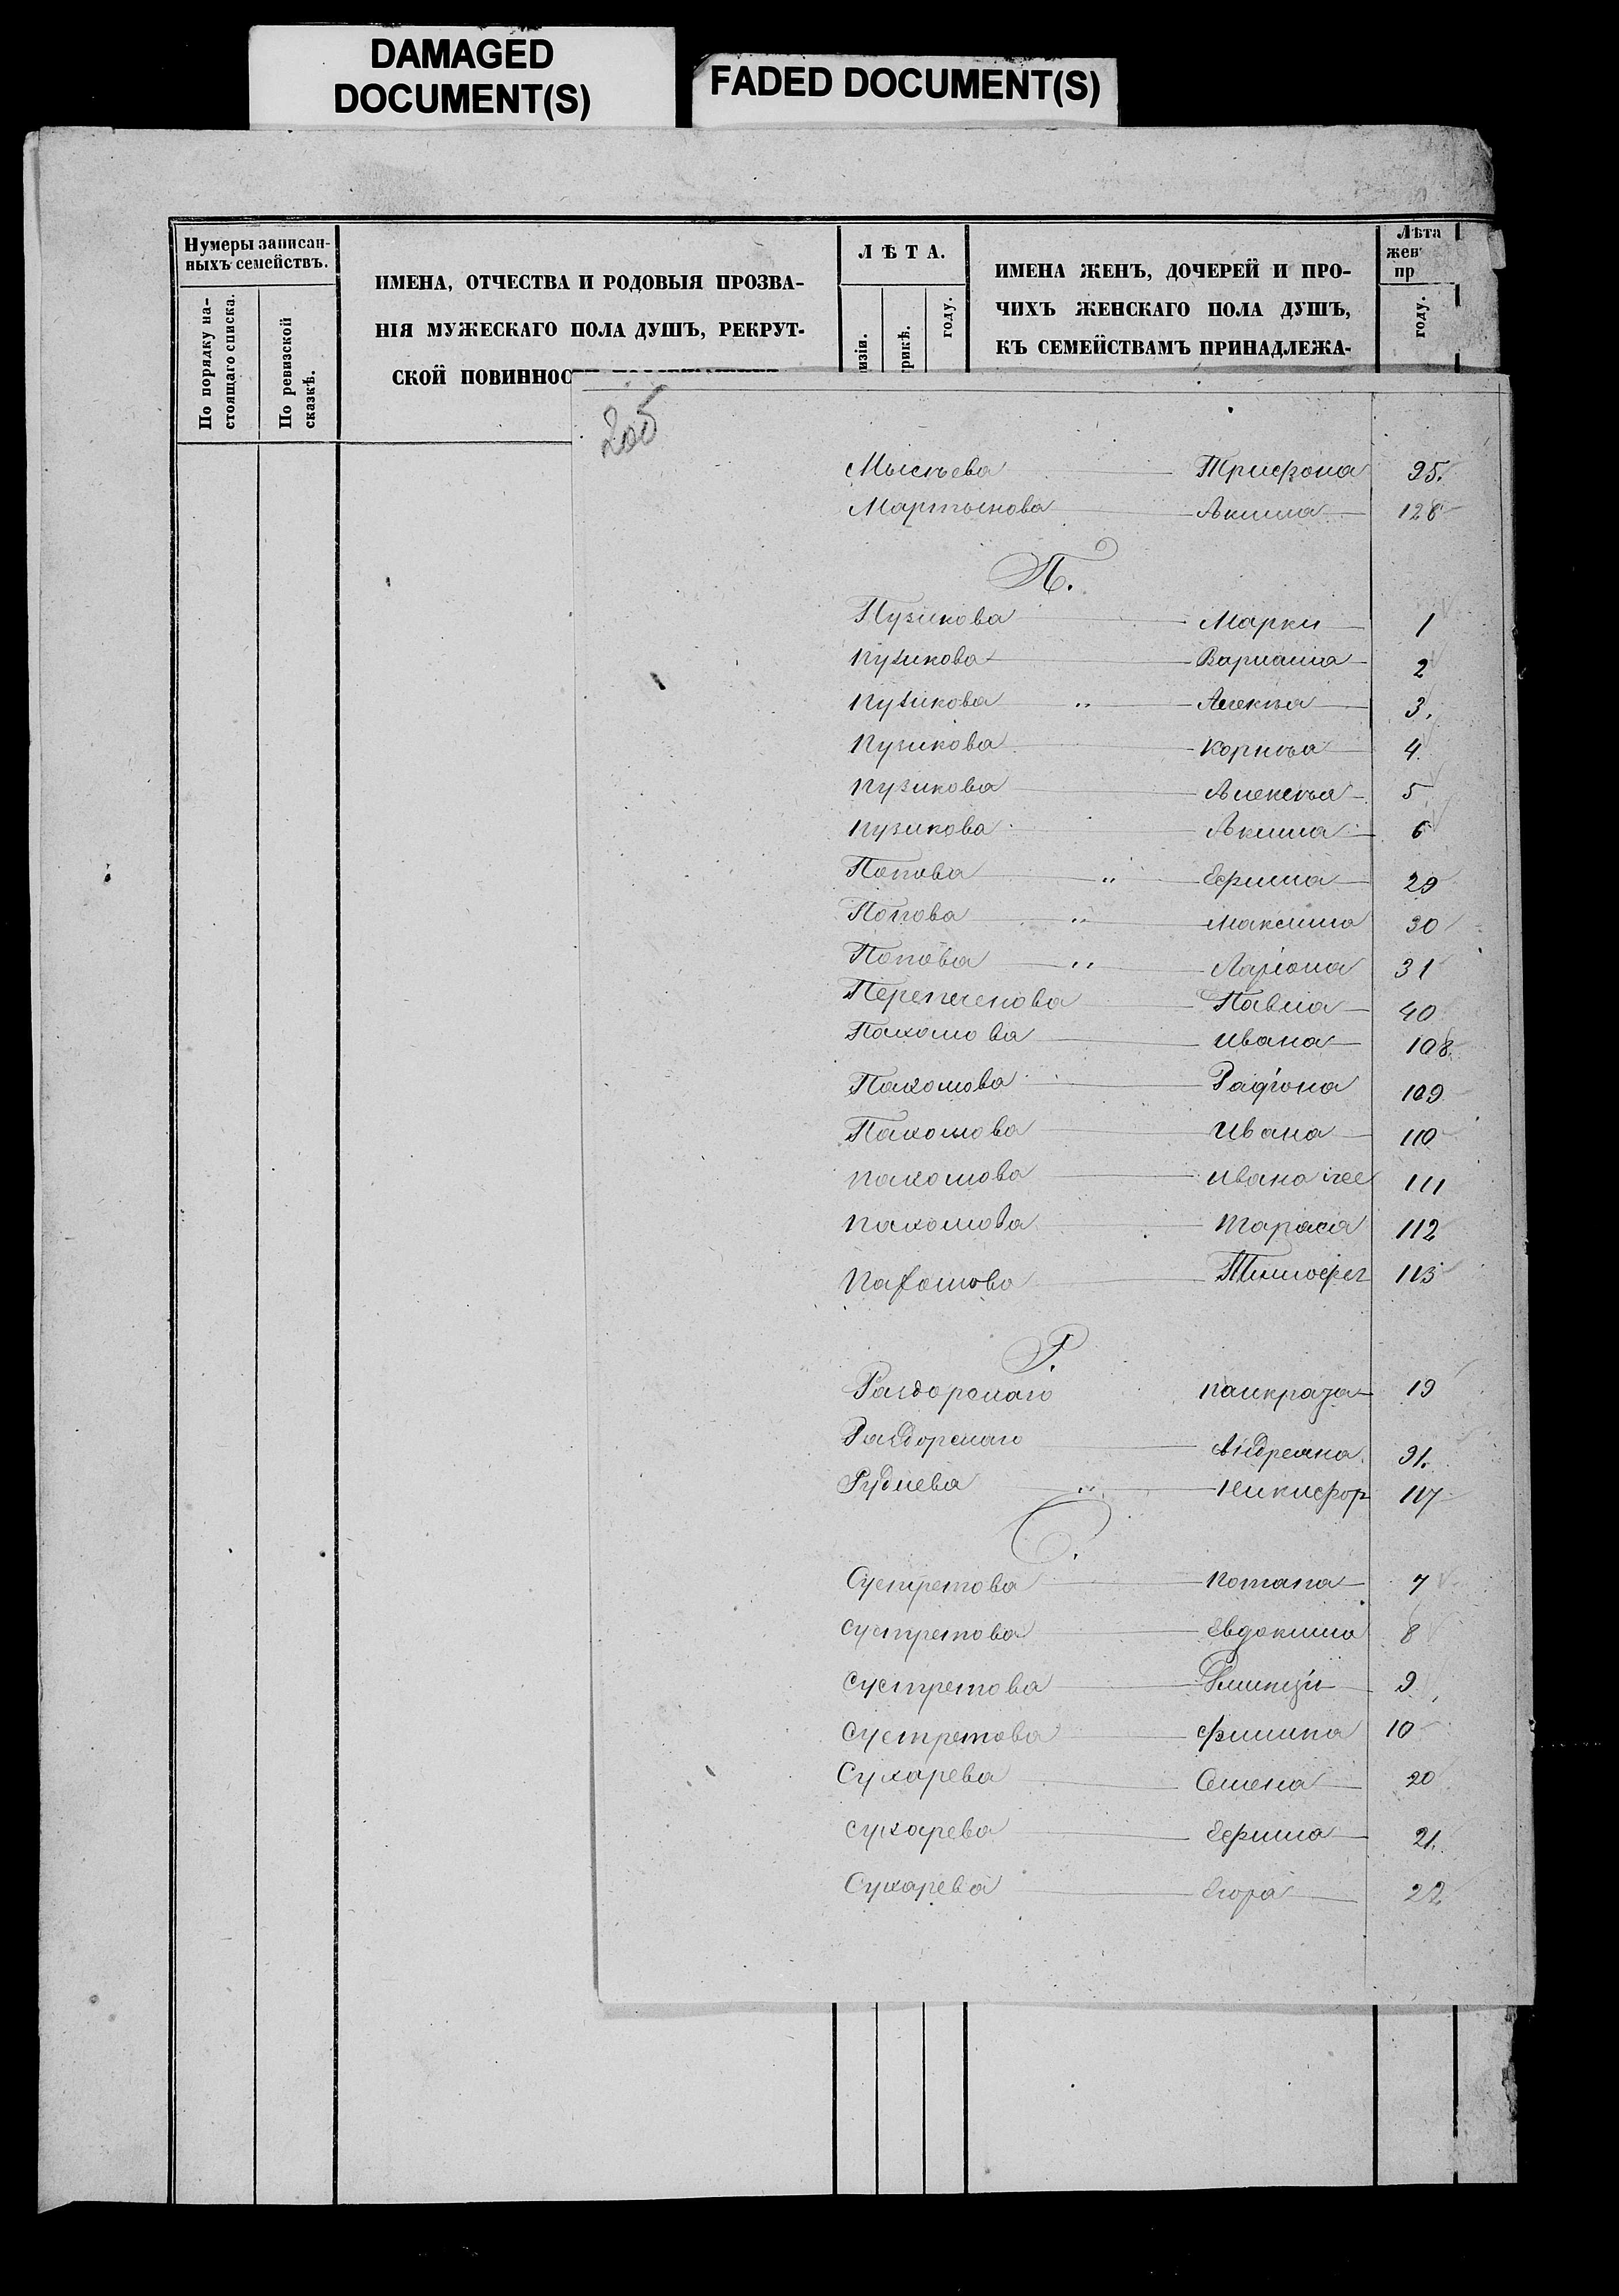 DAMAGED
DOCUMENT(S)
FADED DOCUMENT(S)
Нумеры записан-
ныхъ семействъ.
По порядку на-
стоящаго списка.
По ревизской
сказкѣ.
ИМЕНА, ОТЧЕСТВА И РОДОВЫЯ ПРОЗВА-
НІЯ МУЖЕСКАГО ПОЛА ДУШЪ, РЕКРУТ-
СКОЙ ПОВИННОС
ЛѢТА.
изіи.
рикѣ.
году.
ИМЕНА ЖЕНЪ, ДОЧЕРЕЙ И ПРО-
ЧИХЪ ЖЕНСКАГО ПОЛА ДУШЪ,
КЪ СЕМЕЙСТВАМЪ ПРИНАДЛЕЖА-
Лѣта
жен
пр
году.
205
Трифона 95.
Мартынова Акима 128
П.
Пузикова Марки 1
Пузикова 2
Пузикова " 3.
Пузикова Корнѣя 4
Пузикова Алексѣя 5
Пузикова Акима 6
Попова " Ефима 29
Попова " Максима 30
Попова " Ларіона 31
Перепеченова Павла 40
Пахомова Ивана 108
Пахомова Радіона 109
Пахомова Ивана 110
Пахомова Ивана 111
Пахомова Тараса 112
Пахомова Тимофея 113
Р.
Раздорскаго Панкраза 19
Раздорскаго Андреяна 91.
Руднева " Никифор 117
С.
Сустретова Потапа 7
Сустретова Евдокима 8
Сустретова 9
Сустретова Филипа 10
Сухарева Семена 20
Сухарева Ефима 21.
Сухарева Егора 22